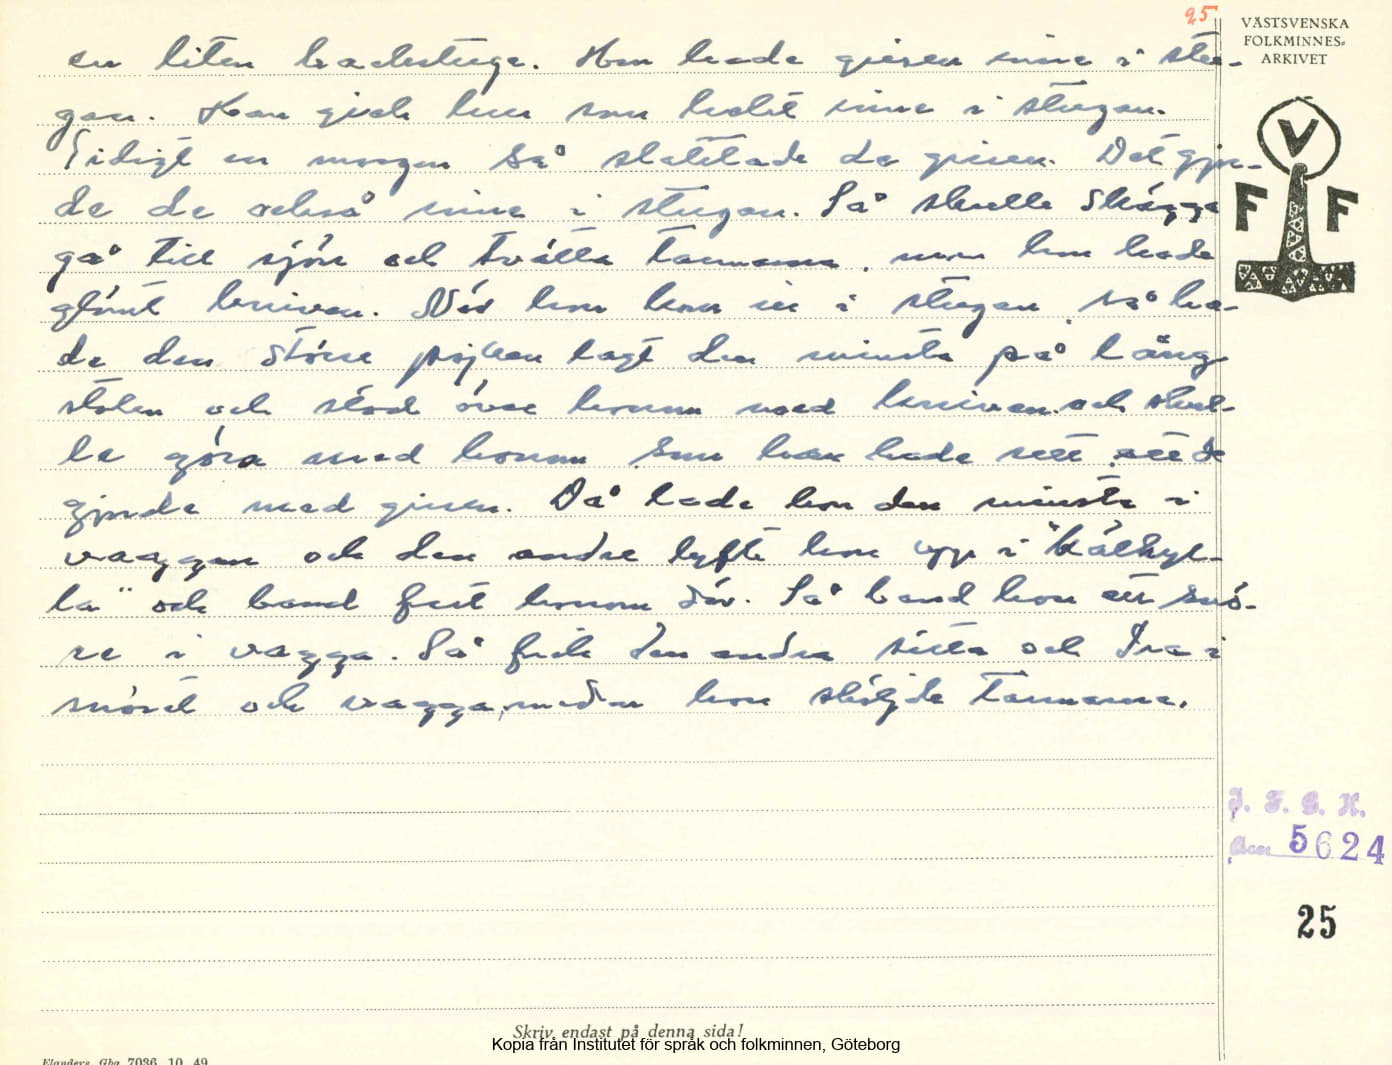 25
VÄSTSVENSKA
FOLKMINNES-
ARKIVET
V
F F
en liten backstuga. Hon hade grisen inne i stu-
gan. Han gick lös som helst inne i stugan.
Tidigt en morgon så slaktade de grisen. Det gjor-
de de också inne i stugan. Så skulle Skägga
gå till sjön och tvätta tarmarna, men hon hade
glömt kniven. När hon kom in i stugan så ha-
de den större pojken lagt den minsta på lång
stolen och stod över honom med kniven och skul-
le göra med honom som han hade sett att de
gjorde med grisen. Då lade hon den minsta i
vaggan och den andre lyfte hon upp i "kålhyl-
la" och band fast honom där. Så band hon ett snö-
re i vagga. Så fick den andra sitta och dra i
snöret och vagga, medan hon sköljde tarmarna.
I. F. G. H.
Acc 5624
25
Skriv endast på denna sida!
Kopia från Institutet för språk och folkminnen, Göteborg
Elanders, Gbg 7036 10 49